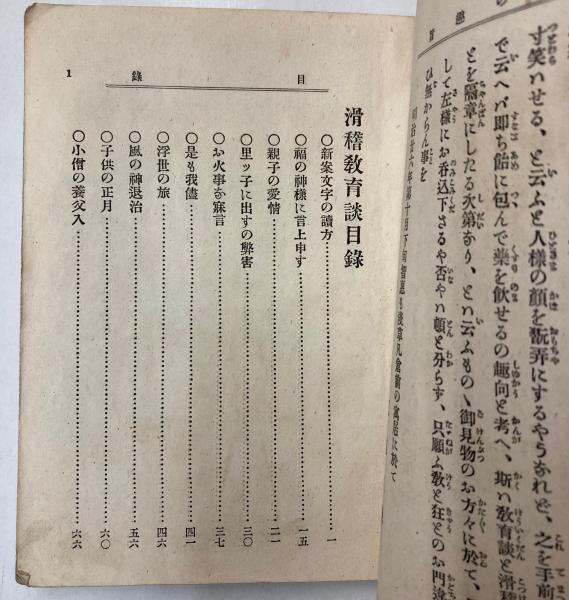 寸笑ハせる、と云ふと人様の顔を翫弄にするやうなれど、之を手前
で云ヘバ即ち飴に包んで薬を飲せるの趣向と考へ、斯ハ教育談と滑稽
とを隔章にしたる次第なり、とハ云ふものゝ御見物のお方々に於て、
して左様にお呑込下さるや否やハ頓と分らず、只願ふ教と狂とのお門違
ひ無からん事を
明治廿六年第十月下旬智恵も
の寓居に於て
目錄
1
滑稽教育談目錄
〇新案文字の讀方……一
〇福の神樣に言上申す……一五
〇親子の愛情……二一
〇里ッ子に出すの弊害……三〇
〇お火事な寐言……三七
〇是も我儘……四一
〇浮世の旅……四六
〇風の神退治……五六
〇子供の正月……六〇
〇小僧の養父入……六六